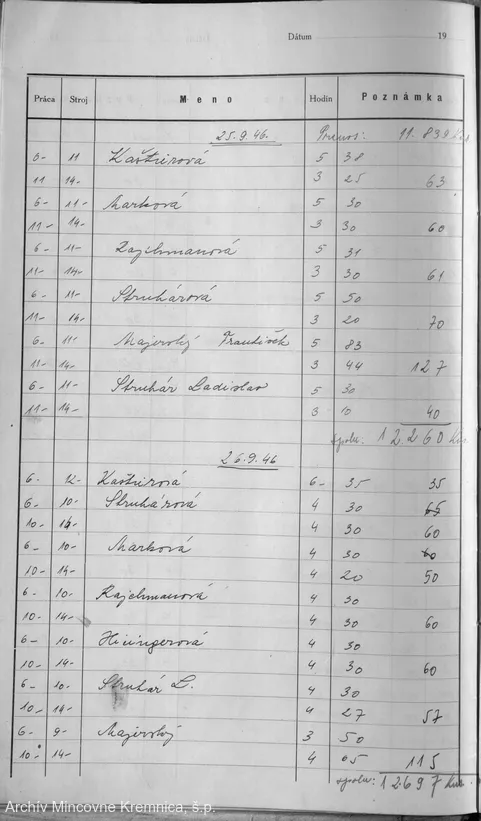 Dátum 19
Práca Stroj Meno Hodín Poznámka
25.9.46. Prenos: 11.839 Kus
6- 11 Kaštierová 5 38
11 14- 3 25 63
6- 11- Marková 5 30
11- 14- 3 30 60
6 11- Rajchmanová 5 31
11- 14- 3 30 61
6 11- Struhárová 5 50
11- 14- 3 20 70
6- 11- Majerský František 5 83
11- 14- 3 44 127
6- 11- Struhár Ladislav 5 30
11- 14- 3 10 40
spolu: 12260 Kus.
26.9.46
6- 12- Kaštierová 6- 35 35
6- 10- Struhárová 4 30 65
10- 14- 4 30 60
6- 10- Marková 4 30 60
10- 14- 4 20 50
6- 10- Rajchmanová 4 30
10- 14- 4 30 60
6- 10- 4 30
10- 14- 4 30 60
6- 10- Struhár L. 4 30
10- 14- 4 27 57
6- 9- Majerský 3 50
10- 14- 4 65 115
spolu: 12697 Kus.
Archív Mincovne Kremnica, š.p.